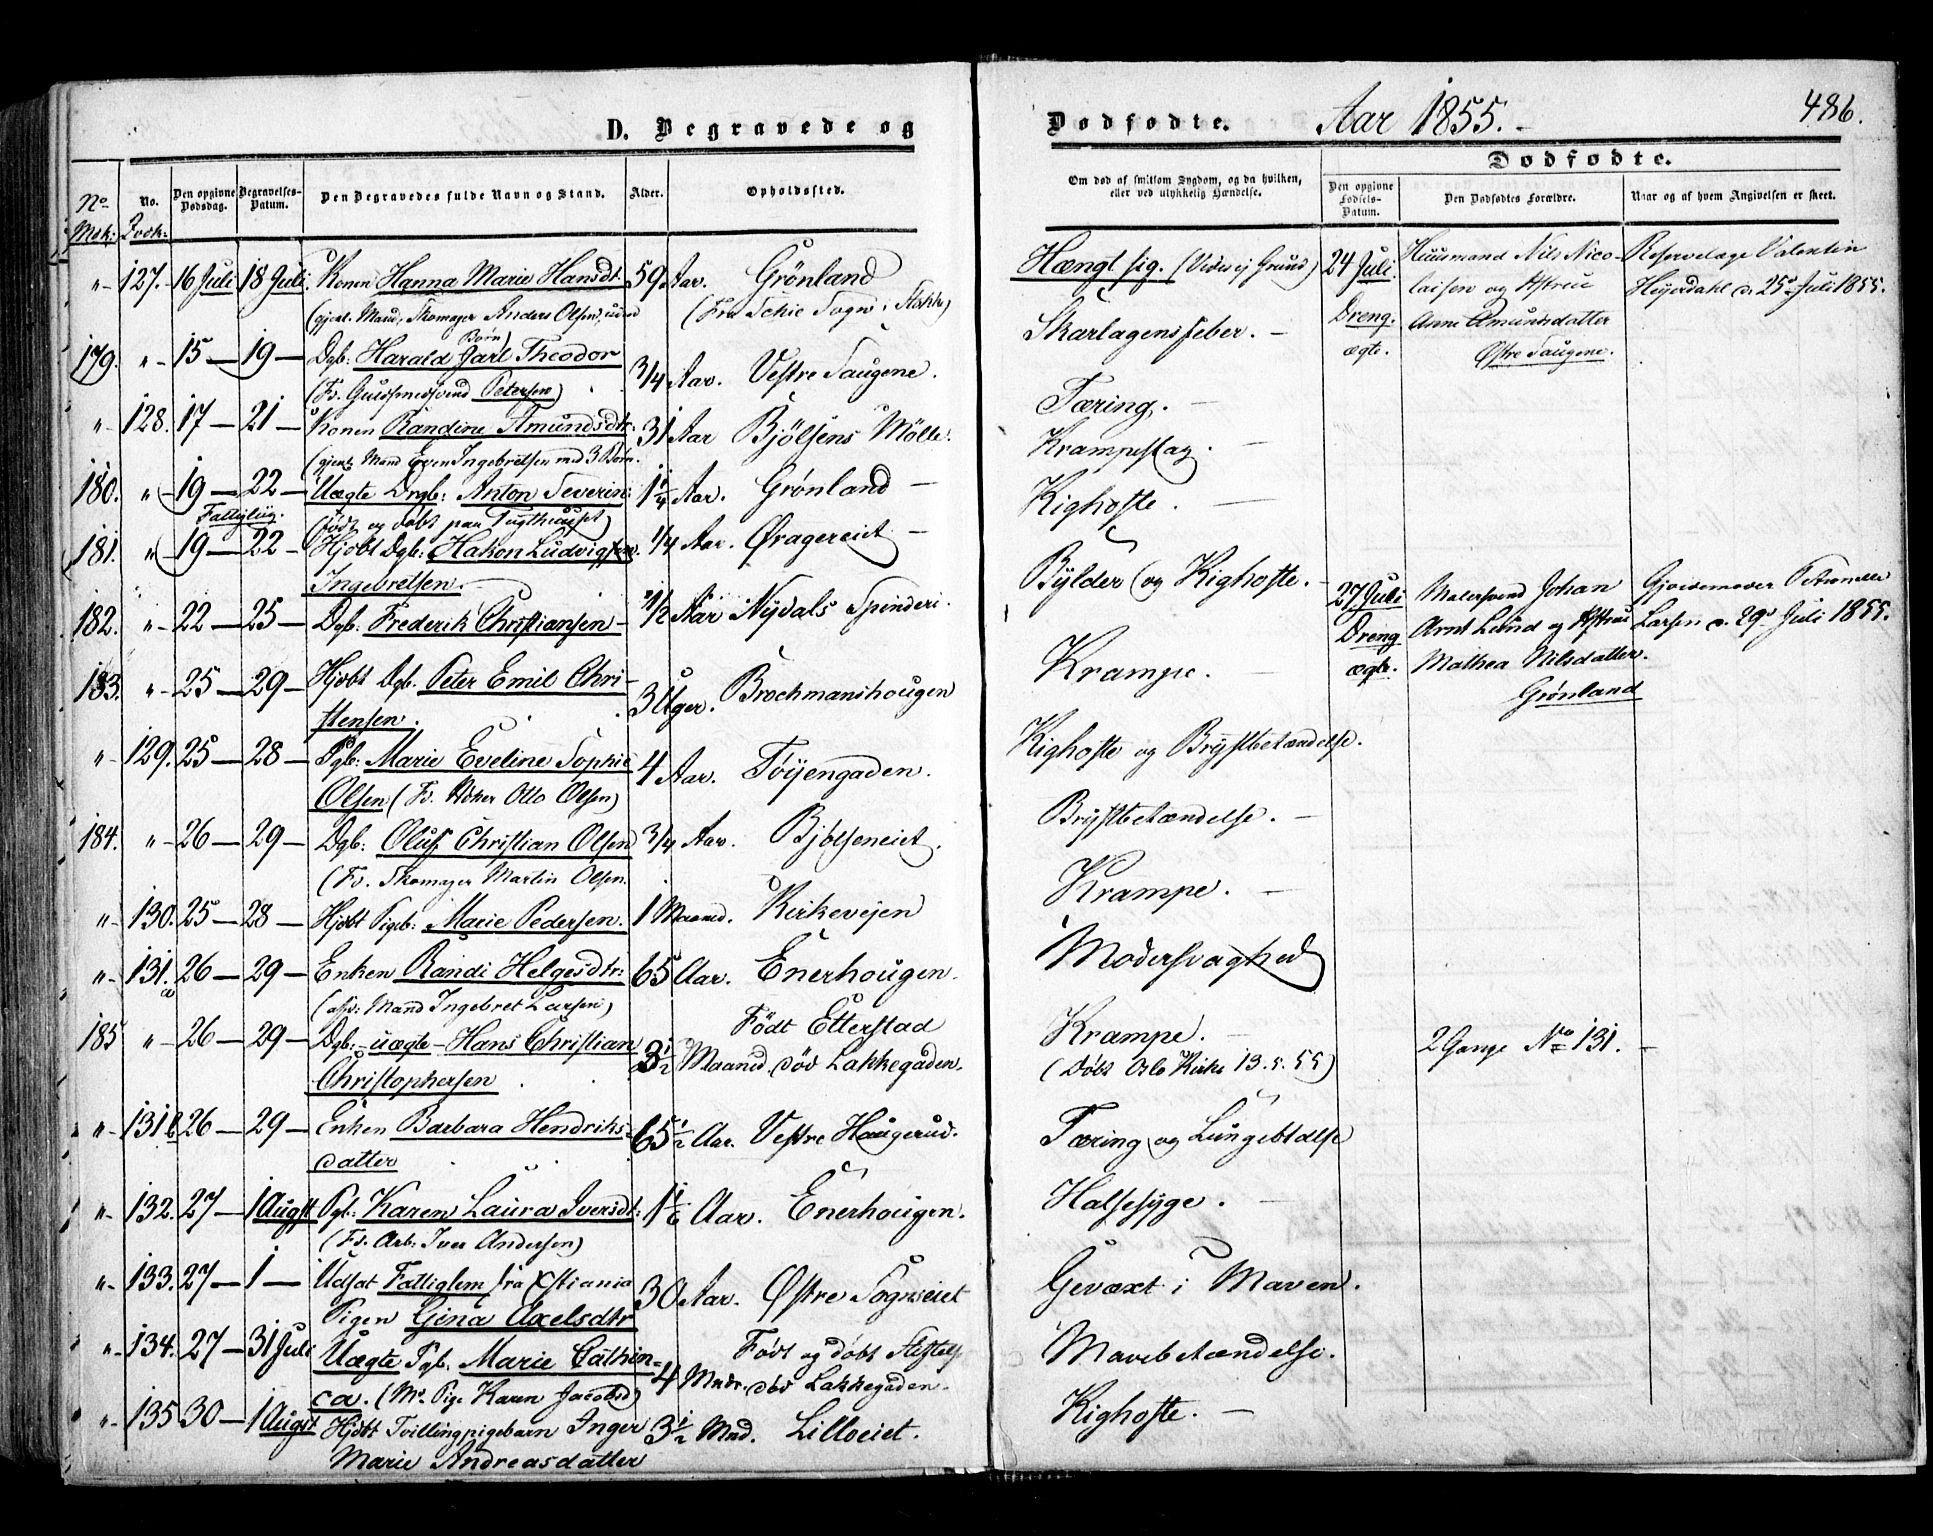 D. Begravede og
No
Msk:
No.
Qvdk:
Den opgivne Dødsdag.
Begravelses-Datum.
Den Begravedes fulde Navn og Stand.
Alder.
Opholdssted.
" 127. 16 Juli 18 Juli Konen Hanna Marie Hansdt. 59 Aar. Grönland
(gjenl. Mand, Skomager Anders Olsen, uden Børn)
179. " 15 — 19 — Dgb: Harald Jarl Theodor 3/4 Aar. Vestre Saugene.
(Fr. Guldsmedsvend Petersen)
" 128. 17 — 21 — Konen Randine Amundsdtr: 31 Aar Bjölsens Mölle.
(gjenl. Mand Even Ingebretsen med 3 Børn.
180. " 19 — 22 — Uægte Drgb: Anton Severin 1 1/4 Aar. Grönland —
Fattiglig. (født og døbt paa Tugthuuset)
181. " 19 — 22 — Hjdbt Dgb: Hakon Ludvigsen 1/4 Aar. Øragereiet —
Ingebretsen.
182. " 22 — 25 — Dgb: Frederik Christiansen — 1/2 Aar Nydals Spinderi.
183. " 25 — 29 — Hjdbt Dgb. Peter Emil Chri-
stensen. 3 Uger. Brochmanshougen
" 129. 25 — 28 — Pgb: Marie Eveline Sophie 4 Aar. Töijengaden.
Olsen (Fr. Høker Otto Olsen)
184. " 26 — 29 — Dgb: Oluf Christian Olsen 3/4 Aar. Bjölseneiet.
(Fr. Skomager Martin Olsen.
" 130. 25 — 28 — Hjdbt Pigeb: Marie Pedersen. 1 Maaned. Kirkeveien
" 131.a 26 — 29 — Enken Randi Helgesdtr: 65 Aar. Enerhougen.
(afd: Mand Ingebret Larsen)
185 " 26 — 29 — Dgb: — uægte — Hans Christian
Christophersen 3 1/2 Maaned Födt Etterstad
död Lakkegaden.
" 131 b 26 — 29 — Enken Barbara Hendriks-
datter 65 1/2 Aar. Vestre Haugerud.
" 132. 27 — 1 Augst Pgb: Karen Laura Iversdt: 1 1/6 Aar. Enerhougen.
(Fr. Arb: Iver Andersen)
" 133. 27 — 1 — Udsat Fattiglem fra Xstiania
Pigen Gina Axelsdtr 30 Aar. Østre Sogneiet
" 134. 27 — 31 Juli Uægte Pgb. Marie Cathin-
ca. (Mr. Pige Karen Jacobsd) 4 Mndr. Födt og döbt
död Lakkegaden.
" 135 30 — 1 Augst Hjdbt Tvillingpigebarn Inger
Marie Andreasdatter 3 1/2 Mnd. Lilloeiet.
Dødfødte. Aar 1855.—
486.
Om død af smitsom Sygdom, og da hvilken,
eller ved ulykkelig Hændelse.
Dødfødte.
Den opgivne Fødsels-Datum.
Den Dødfødtes Forældre.
Naar og af hvem Angivelsen er skeet.
Hængt sig. (Vides ej Grund)
Skarlagensfeber. —
Tæring. —
Krampeslag. —
Kighoste. —
Bylder og Kighoste. —
Krampe. —
Kighoste og Brystbetændelse.
Brystbetændelse. —
Krampe. —
Modersvaghed
Krampe. —
(Döbt Oslo Kirke 13.5.55)
Tæring og Lungebtdelse
Halssyge. —
Gevæxt i Maven.
Mavebetændelse.
Kighoste. —
24 Juli.
Dreng.
ægte.
Huusmand Nils Nico-
laisen og Hstrue
Anne Amundsdatter
Østre Saugene.
Reservelæge Valentin
Heyerdahl d. 25 Juli 1855.
27 Juli
Dreng
ægte.
Malersvend Johan
Arnt Lund og Hstrue
Mathea Nilsdatter.
Grønland
Gjordemoder Petronelle
Larsen d. 29 Juli 1855.
2 Gange No 131. —